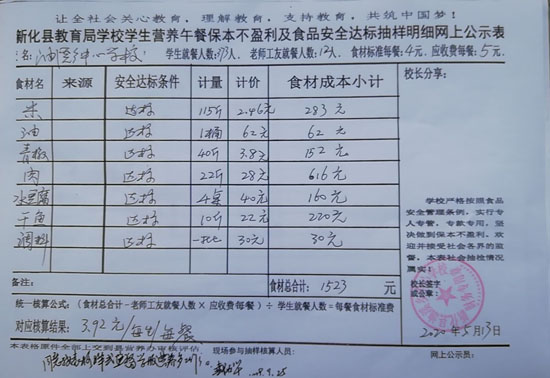 让全社会关心教育，理解教育，支持教育，共筑中国梦！
新化县教育局学校学生营养午餐保本不盈利及食品安全达标抽样明细网上公示表
学生就餐人数:373人、老师工友就餐人数:12人、食材标准每餐:4元、应收费每餐:5元、
食材名 来源 安全达标条件 计量 计价 食材成本小计 校长分享:
米 达标 115斤 2.46元 283元
油 达标 1桶 62元 62元
青椒 达标 40斤 3.8元 152元
肉 达标 22斤 28元 616元
水豆腐 达标 4桌 40元 160元
干鱼 达标 10斤 22元 220元
调料 达标 一批 30元 30元
学校严格按照食品
安全管理条例，实行专
人专管，专款专用，坚
决做到保本不盈利，欢
迎并接受社会各界的监
督，本表社会抽检情况
属实:
校长签字
或公章:
备注: 食材总合计: 1523 元
统一核算公式:(食材总合计-老师工友就餐人数×应收费每餐)÷学生就餐人数=每餐食材标准费
对应核算结果: 3.92元/每生/每餐
2020年5月13日
本表格原件全部上交到县营养办审核评估
现场参与抽样核算人员:
网上公示员: